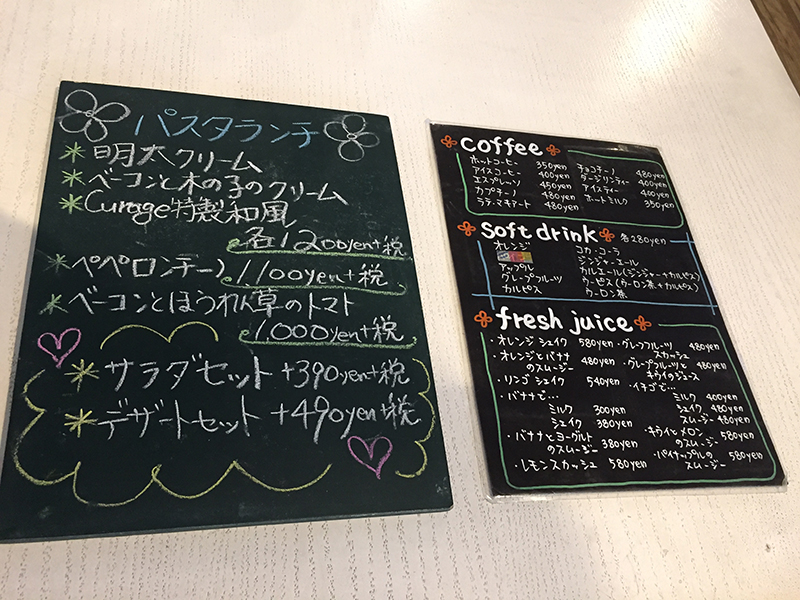 パスタランチ
* 明太クリーム
* ベーコンと木の子のクリーム
* Curage特製和風
各1200yen+税
* ペペロンチーノ 1100yen+税
* ベーコンとほうれん草のトマト
1000yen+税
* サラダセット +390yen+税
* デザートセット +490yen+税
coffee
ホットコーヒー 350yen
アイスコーヒー 400yen
エスプレッソ 450yen
カプチーノ 480yen
ラテ・マキアート 480yen
チョコチーノ 480yen
ダージリンティー 400yen
アイスティー 400yen
ホットミルク 350yen
soft drink 各280yen
オレンジ
アップル
グレープフルーツ
カルピス
コカ・コーラ
ジンジャーエール
カルエール(ジンジャー+カルピス)
ウーピス(ウーロン茶+カルピス)
ウーロン茶
fresh juice
・オレンジシェイク 580yen
・オレンジとバナナ
のスムージー 480yen
・リンゴシェイク 540yen
・バナナで…
ミルク 300yen
シェイク 380yen
・バナナとヨーグルト
のスムージー 380yen
・レモンスカッシュ 580yen
・グレフルーツ
スカッシュ 480yen
・グレープフルーツと
キウイのジュース 480yen
・イチゴで…
ミルク 400yen
シェイク 480yen
スムージー 480yen
・キウイとメロン
のスムージー 580yen
・パイナップルの
スムージー 580yen